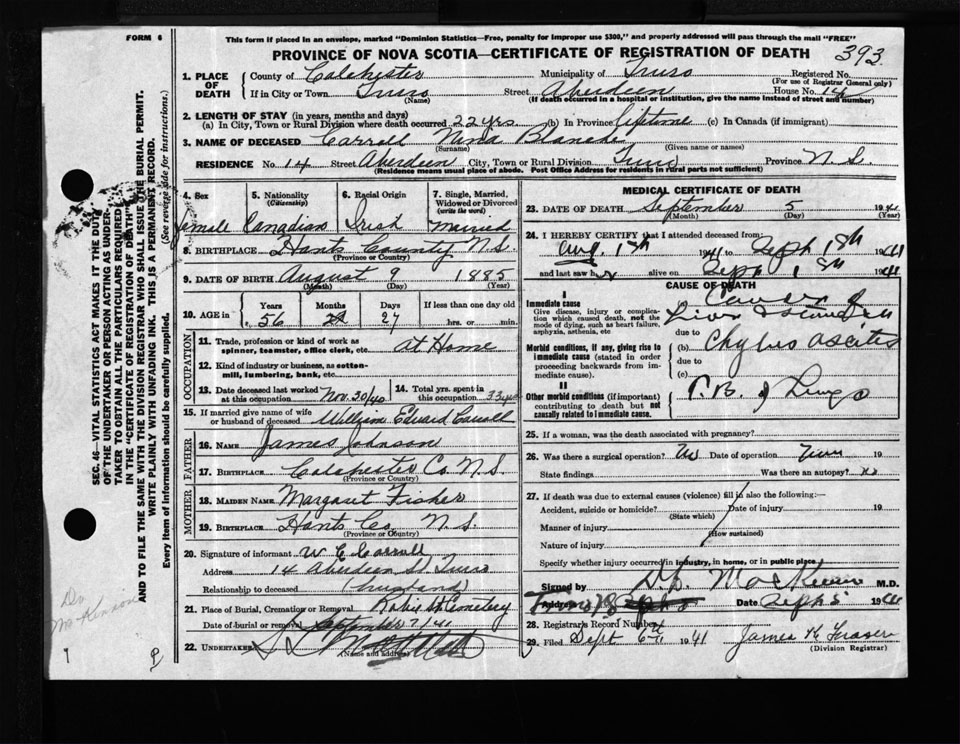 FORM 6
This form if placed in an envelope, marked "Dominion Statistics—Free, penalty for improper use $300," and properly addressed will pass through the mail "FREE"
PROVINCE OF NOVA SCOTIA—CERTIFICATE OF REGISTRATION OF DEATH 393
1. PLACE OF DEATH
County of Colchester Municipality of Truro Registered No.
(For use of Registrar General only)
If in City or Town Truro Street Aberdeen House No. 14
(Name) (If death occurred in a hospital or institution, give the name instead of street and number)
2. LENGTH OF STAY (in years, months and days)
(a) In City, Town or Rural Division where death occurred 22 yrs (b) In Province lifetime (c) In Canada (if immigrant)
3. NAME OF DECEASED Carroll Nina Blanche
(Surname) (Given name or names)
RESIDENCE No. 14 Street Aberdeen City, Town or Rural Division Truro Province N.S.
(Residence means usual place of abode. Post Office Address for residents in rural parts not sufficient)
4. Sex 5. Nationality (Citizenship) 6. Racial Origin 7. Single, Married, Widowed or Divorced (write the word)
female Canadian Irish Married
8. BIRTHPLACE Hants County N.S.
(Province or Country)
9. DATE OF BIRTH August 9 1885
(Month) (Day) (Year)
10. AGE in Years Months Days If less than one day old
56 27 hrs. or min.
OCCUPATION
11. Trade, profession or kind of work as spinner, teamster, office clerk, etc. at Home
12. Kind of industry or business, as cotton-mill, lumbering, bank, etc.
13. Date deceased last worked at this occupation Nov. 30/40 14. Total yrs. spent in this occupation 33 yrs
15. If married give name of wife or husband of deceased William Edward Carroll
FATHER
16. NAME James Johnson
17. BIRTHPLACE Colchester Co. N.S.
(Province or Country)
MOTHER
18. MAIDEN NAME Margaret Fisher
19. BIRTHPLACE Hants Co. N.S.
(Province or Country)
20. Signature of informant W E Carroll
Address 14 Aberdeen St Truro
Relationship to deceased (husband)
21. Place of Burial, Cremation or Removal Robie St Cemetery
Date of burial or removal September 7/41
22. UNDERTAKER
(Name and Address)
MEDICAL CERTIFICATE OF DEATH
23. DATE OF DEATH September 5 1941
(Month) (Day) (Year)
24. I HEREBY CERTIFY that I attended deceased from:
Aug. 1941 to Sept 1941
and last saw her alive on Sept 1941
CAUSE OF DEATH
I
Immediate cause
Give disease, injury or complication which caused death, not the mode of dying, such as heart failure, asphyxia, asthenia, etc
(a) Cancer of Liver &
due to
Morbid conditions, if any, giving rise to immediate cause (stated in order proceeding backwards from immediate cause).
(b) Chylous ascites
due to
(c)
II
Other morbid conditions (if important) contributing to death but not causally related to immediate cause.
T.B. of Lungs
25. If a woman, was the death associated with pregnancy?
26. Was there a surgical operation? No Date of operation 19
State findings Was there an autopsy? no
27. If death was due to external causes (violence) fill in also the following:—
Accident, suicide or homicide? Date of injury 19
(State which)
Manner of injury
(How sustained)
Nature of injury
Specify whether injury occurred in industry, in home, or in public place
Signed by M.D.
Address Date Sept 5 1941
28. Registrar's Record Number
29. Filed Sept 6 1941 James K Fraser
(Division Registrar)
SEC. 46—VITAL STATISTICS ACT MAKES IT THE DUTY OF THE UNDERTAKER OR PERSON ACTING AS UNDERTAKER TO OBTAIN ALL THE PARTICULARS REQUIRED IN THE "CERTIFICATE OF REGISTRATION OF DEATH" AND TO FILE THE SAME WITH THE DIVISION REGISTRAR WHO SHALL ISSUE THE BURIAL PERMIT.
WRITE PLAINLY WITH UNFADING INK. THIS IS A PERMANENT RECORD.
Every item of information should be carefully supplied. (See reverse side for instructions.)